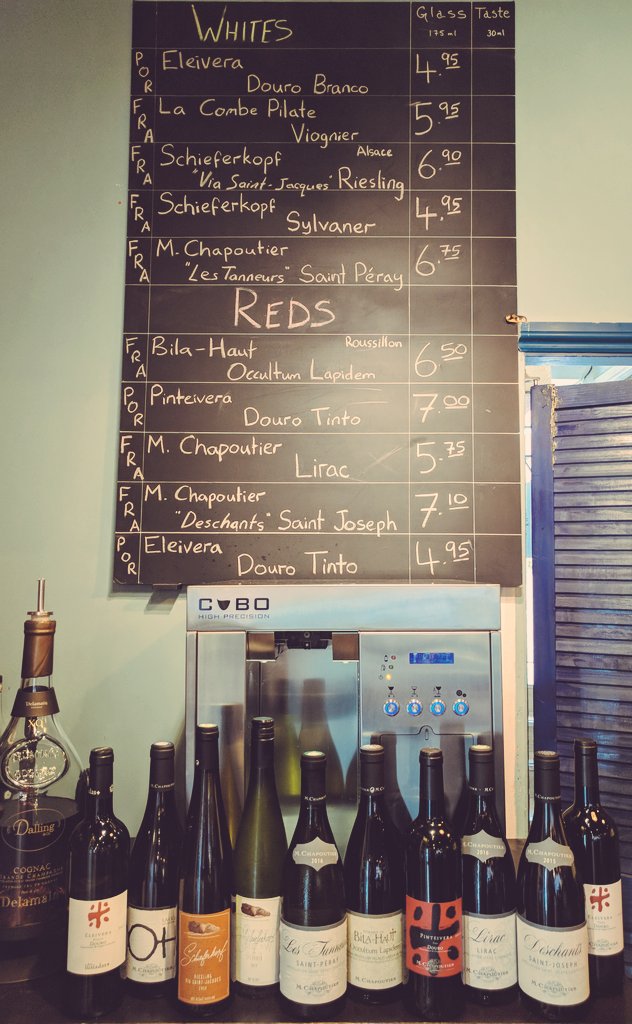 WHITES
Glass Taste
175 ml 30ml
POR Eleivera
Douro Branco 4.95
FRA La Combe Pilate
Viognier 5.95
FRA Schieferkopf Alsace
"Via Saint-Jacques" Riesling 6.90
FRA Schieferkopf
Sylvaner 4.95
FRA M. Chapoutier
"Les Tanneurs" Saint Péray 6.75
REDS
FRA Bila-Haut Roussillon
Occultum Lapidem 6.50
POR Pinteivera
Douro Tinto 7.00
FRA M. Chapoutier
Lirac 5.75
FRA M. Chapoutier
"Deschants" Saint Joseph 7.10
POR Eleivera
Douro Tinto 4.95
CUBO
HIGH PRECISION
Delamain
XO
Dalling
COGNAC
GRANDE CHAMPAGNE
Delamain
ELEIVERA
DOURO
M. CHAPOUTIER
Schieferkopf
RIESLING
VIA SAINT-JACQUES
M. CHAPOUTIER
2016
Les Tanneurs
SAINT-PERAY
M. CHAPOUTIER
BILA-HAUT
Occultum Lapidem
M. CHAPOUTIER
PINTEIVERA
DOURO
M. CHAPOUTIER
2016
Lirac
LIRAC
M. CHAPOUTIER
M. CHAPOUTIER
2015
Deschants
SAINT-JOSEPH
M. CHAPOUTIER
ELEIVERA
DOURO